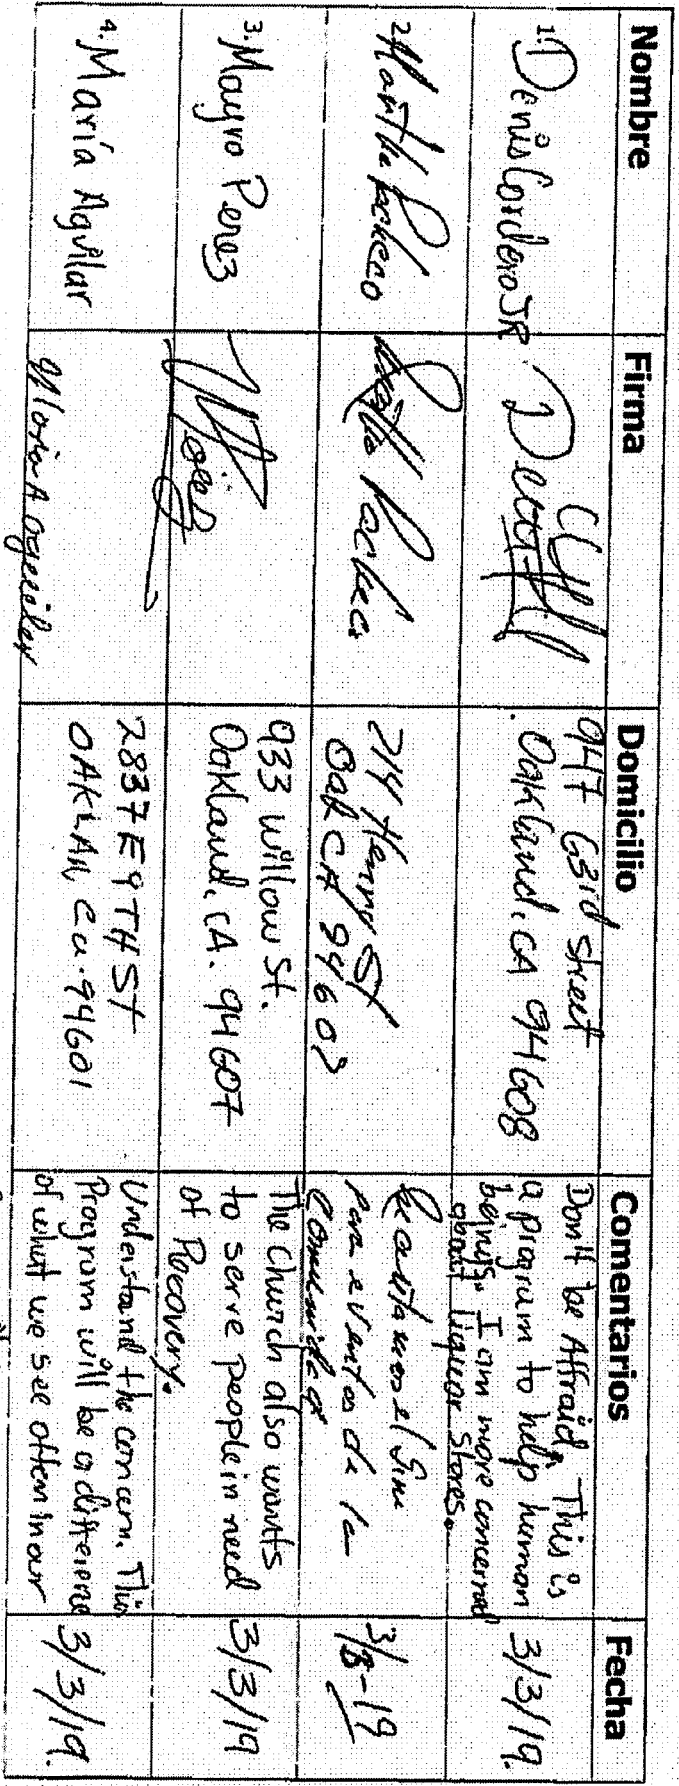 Nombre Firma Domicilio Comentarios Fecha
1. Denis Cordero JR
947 63rd street
Oakland, CA 94608
Don't be Affraid, This is
a program to help human
beings. I am more concerned
about liquor stores.
3/3/19.
2. Martha Pacheco
Martha Pacheco
214 Henry St
Oak CA 94607
para eventos de la
Comunidad
3/8-19
3. Mayro Perez
933 willow St.
Oakland, CA. 94607
The Church also wants
to serve people in need
of Recovery.
3/3/19
4. María Aguilar
Maria A aguilar
2837 E 9TH ST
OAKLAN, Ca. 94601
Understand the concern. This
Program will be a difference
of what we see often in our
3/3/19.